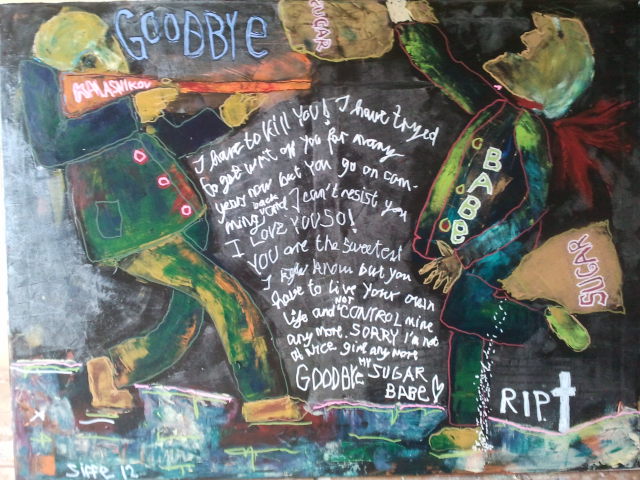 GOODBYE
SUGAR
KALASNIKOV
I have to kill YOU! I have tryed
to get writ off you for many
years now but you go on com-
ming back and I can't resist you
I LOVE YOU SO!
YOU are the sweetest
I know but you
have to live your own
life and NOT CONTROL mine
any more. SORRY I'm not
a nice girl any more
GOODBYE MY SUGAR
BABE
BABE
SUGAR
RIP.
12